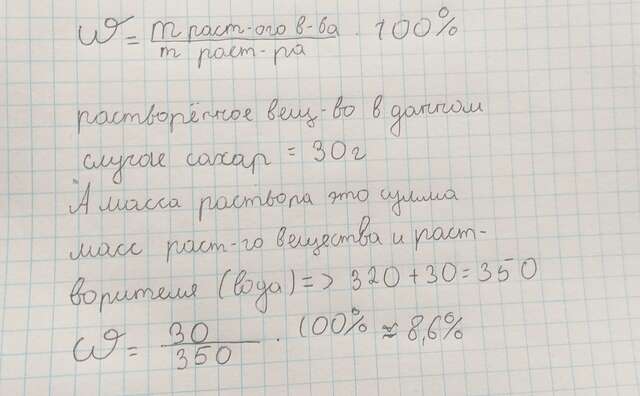 ω = m раст-ого в-ва / m раст-ра · 100%
растворённое вещ-во в данном
случае сахар = 30г
А масса раствора это сумма
масс раст-го вещества и раст-
ворителя (вода) => 320 + 30 = 350
ω = 30 / 350 · 100% ≈ 8,6%